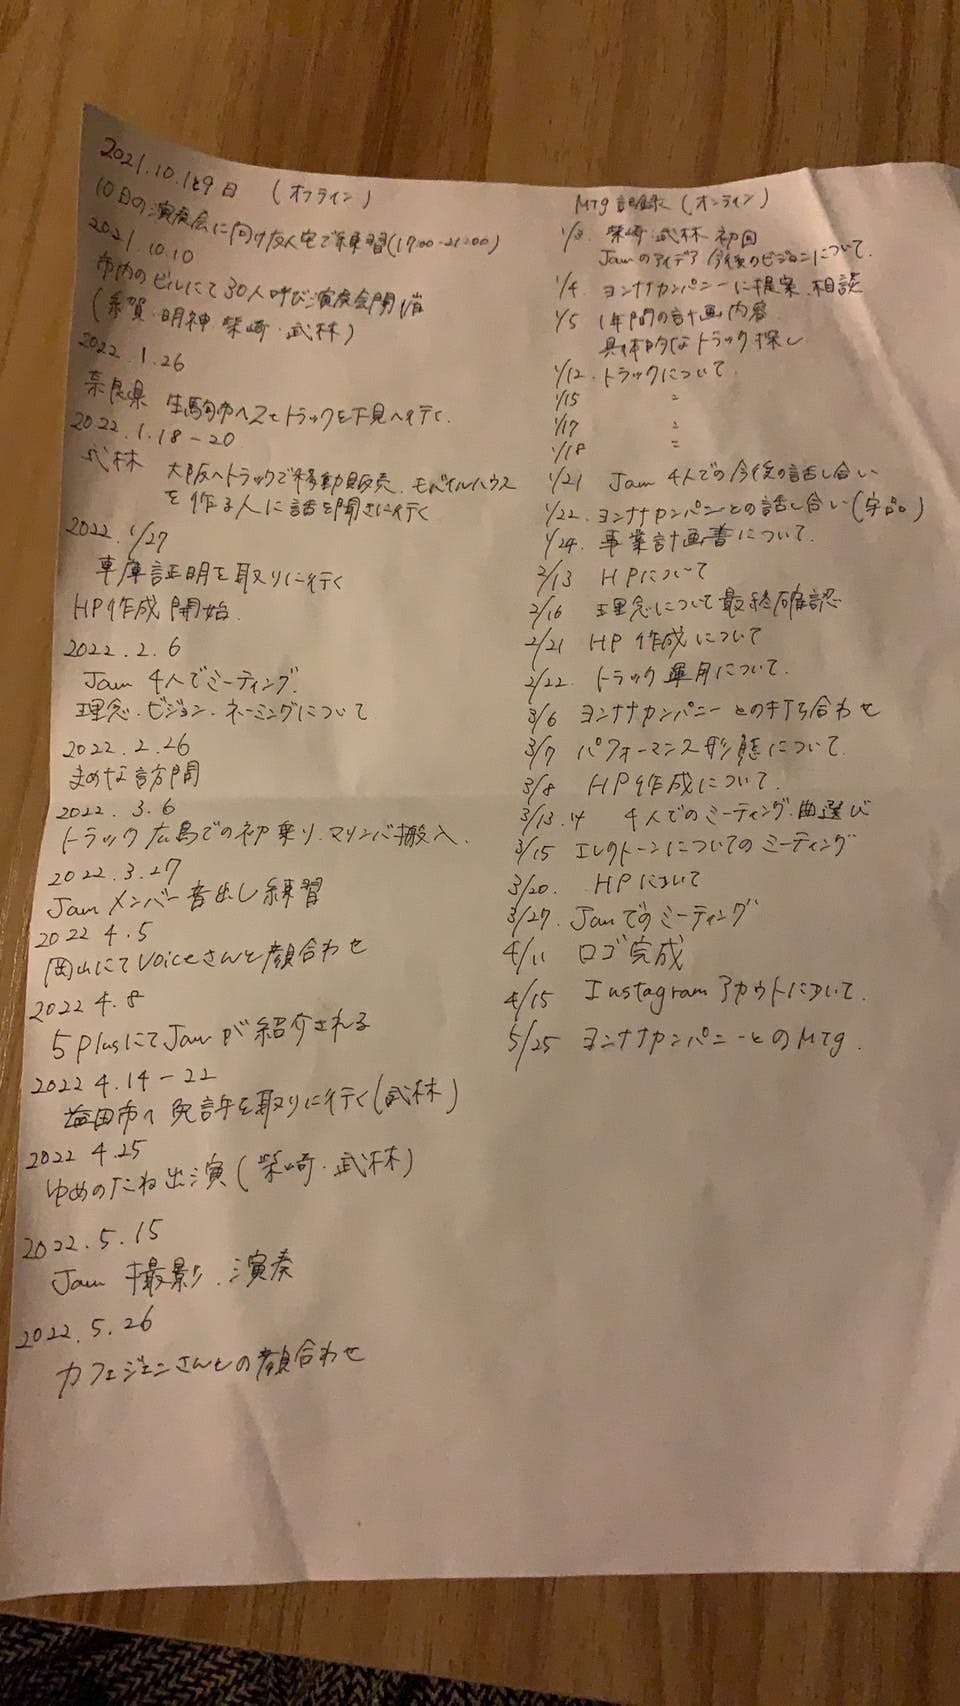 2021.10.1と9日 (オフライン)
10日の演奏会に向け友人宅で練習(17:00-21:00)
2021.10.10
市内のビルにて30人呼び演奏会開催
(系賀・明神・柴崎・武林)
2022.1.26
奈良県 生駒市へ2tトラックを下見へ行く.
2022.1.18-20
武林 大阪へトラックで移動販売、モバイルハウス
を作る人に話を聞きに行く
2022.1/27
車庫証明を取りに行く
HP作成開始.
2022.2.6
Jam 4人でミーティング.
理念・ビジョン・ネーミングについて
2022.2.26
まめな訪問
2022.3.6
トラック広島での初乗り・マリンバ搬入.
2022.3.27
Jamメンバー音出し練習
2022 4.5
岡山にてvoiceさんと顔合わせ
2022 4.8
5plusにてJamが紹介される
2022 4.14-22
益田市へ免許を取りに行く(武林)
2022 4.25
ゆめのたね出演(柴崎・武林)
2022.5.15
Jam 撮影.演奏
2022.5.26
カフェジェンさんとの顔合わせ
Mtg記録(オンライン)
1/3. 柴崎・武林 初回
Jamのアイデア 今後のビジョンについて.
1/4 ヨンナナカンパニーに提案.相談
1/5 1年間の計画内容
具体的なトラック探し
1/12. トラックについて.
1/15 〃
1/17 〃
1/18 〃
1/21 Jam 4人での今後の話し合い
1/22. ヨンナナカンパニーとの話し合い(宇品)
1/24. 事業計画書について.
2/13 HPについて
2/16 理念について最終確認
2/21 HP作成について
2/22. トラック運用について.
3/6 ヨンナナカンパニーとの打ち合わせ
3/7 パフォーマンス形態について.
3/8 HP作成について.
3/13.14 4人でのミーティング.曲選び
3/15 エレクトーンについてのミーティング
3/20. HPについて
3/27. Jamでのミーティング
4/11 ロゴ完成
4/15 Instagramアカウトについて.
5/25 ヨンナナカンパニーとのMtg.